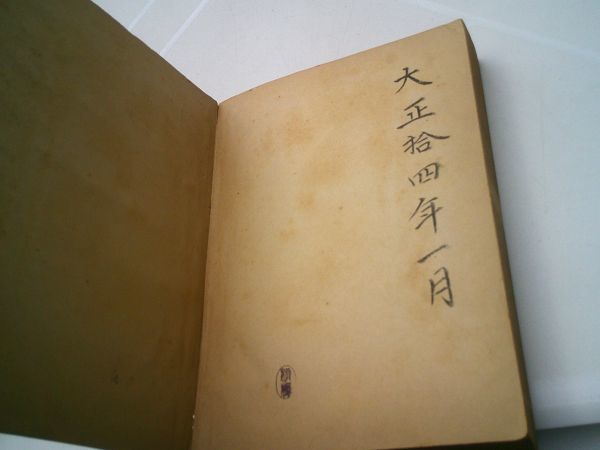 大正拾四年一月